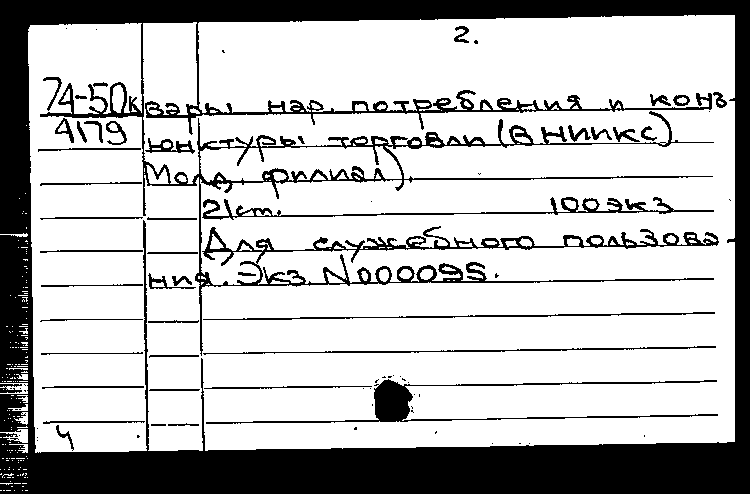 2.
74-50к вары нар. потребления и конъ-
4179 юнктуры торговли (ВНИИКС).
Молд. филиал).
21 ст. 100 экз
Для служебного пользова-
ния. Экз. N000095.
Ч